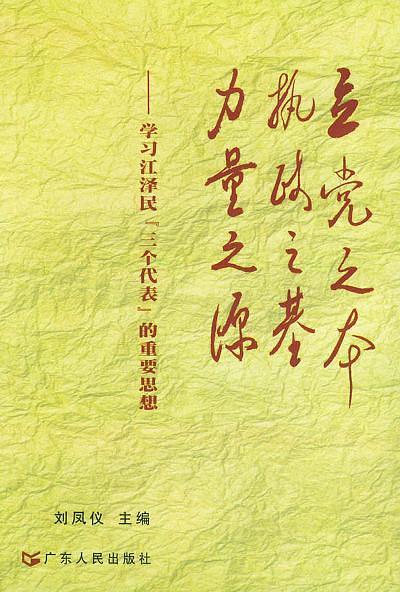 立党之本
执政之基
力量之源
——学习江泽民『三个代表』的重要思想
刘凤仪 主编
广东人民出版社